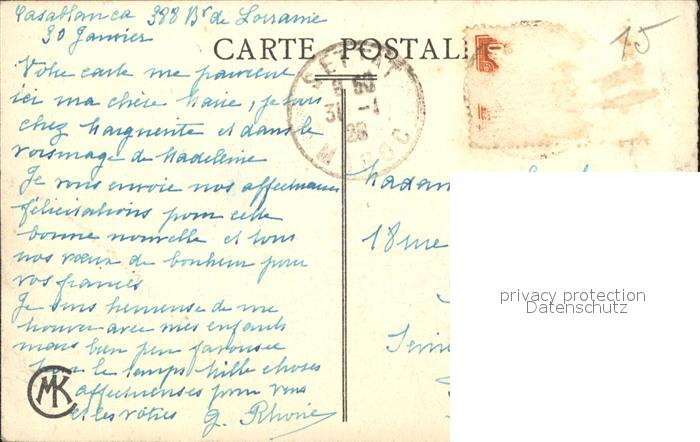 Casablanca 388 Bd de Lorraine
30 Janvier
CARTE POSTALE
15
Votre carte me parvient
ici ma chère Marie, je suis
chez Marguerite et dans le
voisinage de Madeleine
Je vous envoie nos affectueuses
félicitations pour cette
bonne nouvelle et tous
nos vœux de bonheur pour
vos fiancés
Je suis heureuse de me
trouver avec mes enfants
mais bien peu favorisée
par le temps Mille choses
affectueuses pour vous
et les vôtres
MAROC
Madam
18 rue
privacy protection
Datenschutz
CMK